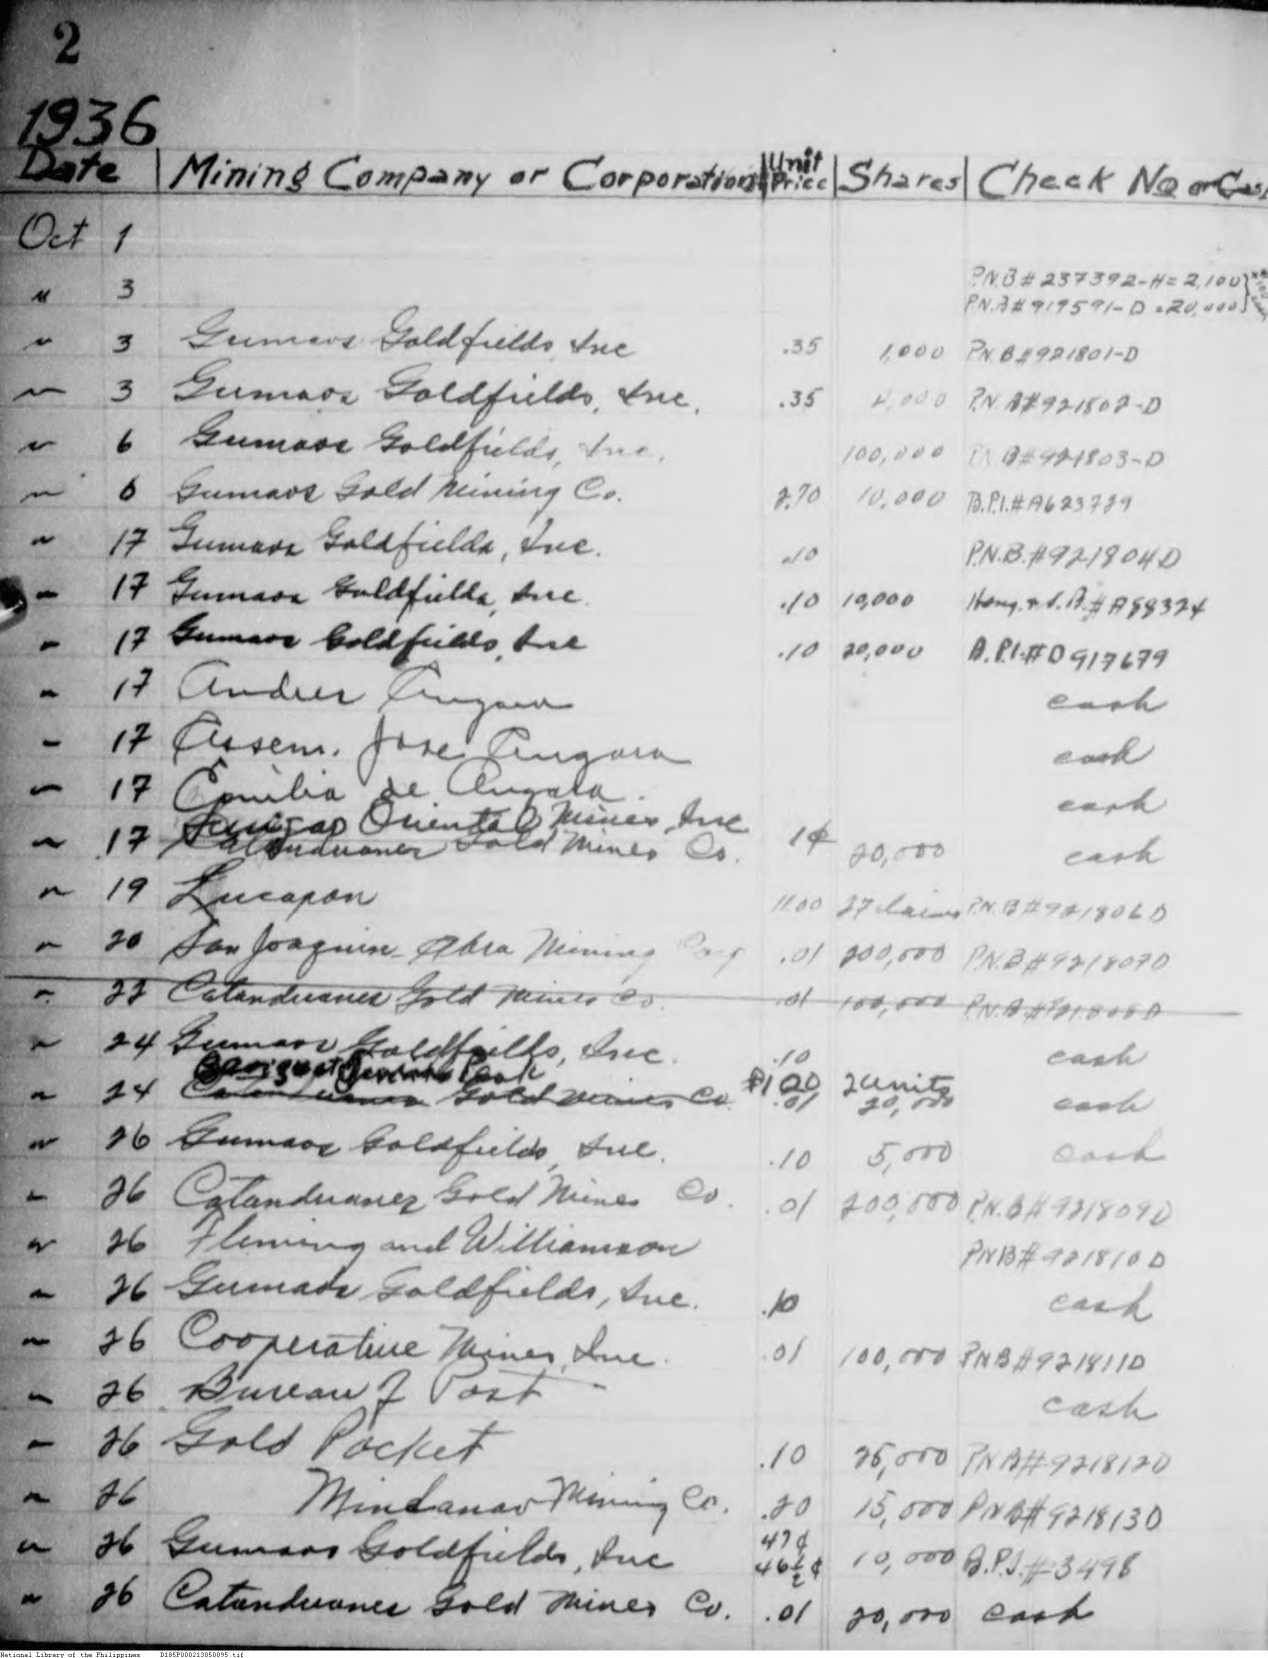 2
1936
Date Mining Company or Corporation Unit Price Shares Check No or Cash
Oct 1
" 3 P.N.B # 237392-H = 2,100
P.N.B # 919591-D = 20,000
" 3 Gumaos Goldfields, Inc .35 1,000 P.N.B # 921801-D
" 3 Gumaos Goldfields, Inc. .35 P.N.B # 921802-D
" 6 Gumaos Goldfields, Inc. 100,000 P.N.B # 921803-D
" 6 Gumaos Gold Mining Co. 2.70 10,000 B.P.I. # A623729
" 17 Gumaos Goldfields, Inc. .10 P.N.B. # 921804D
" 17 Gumaos Goldfields, Inc. .10 10,000 Hong. & S. B. # A88324
" 17 Gumaos Goldfields, Inc .10 20,000 B.P.I. # D917679
" 17 Andres Angara cash
" 17 Assem. Jose Angara cash
" 17 Emilia de Angara. cash
Oriental Mines, Inc
" 17 Catanduanes Gold Mines Co. 1¢ 20,000 cash
" 19 Lucapon 11.00 27 claims P.N.B # 921806D
" 20 San Joaquin-Abra Mining Corp .01 200,000 P.N.B # 921807D
" 22 Catanduanes Gold Mines Co. .01 100,000 P.N.B # 921808D
" 24 Gumaos Goldfields, Inc. .10 cash
₱1.00 2 units
" 24 Catanduanes Gold Mines Co. .01 20,000 cash
" 26 Gumaos Goldfields, Inc. .10 5,000 cash
" 26 Catanduanes Gold Mines Co. .01 200,000 P.N.B # 921809D
" 26 Fleming and Williamson PNB # 921810D
" 26 Gumaos Goldfields, Inc. .10 cash
" 26 Cooperative Mines, Inc. .01 100,000 PNB # 921811D
" 26 Bureau of Post cash
" 26 Gold Pocket .10 25,000 PNB # 921812D
" 26 Mindanao Mining Co. .20 15,000 PNB # 921813D
47¢
" 26 Gumaos Goldfields, Inc 46½¢ 10,000 B.P.I. # 3498
" 26 Catanduanes Gold Mines Co. .01 20,000 cash
National Library of the Philippines D185P000213050095.tif